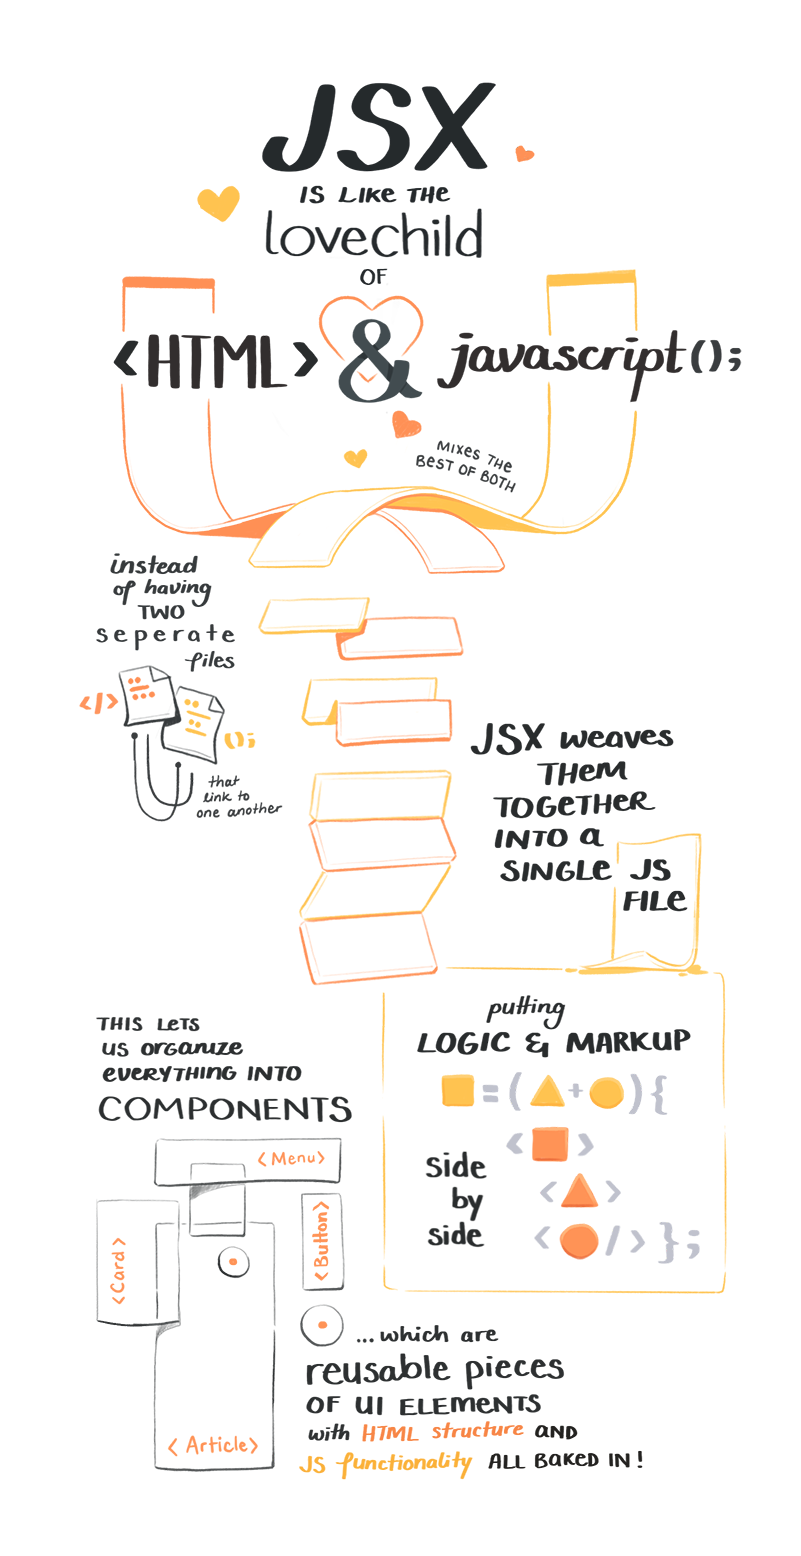 JSX
IS LIKE THE
lovechild
OF
<HTML> & javascript();
MIXES THE
BEST OF BOTH
instead
of having
TWO
seperate
files
</>
();
that
link to
one another
JSX weaves
THEM
TOGETHER
INTO a
SINGLE JS
FILE
putting
LOGIC & MARKUP
= ( + ) {
< >
side
by
side
< >
< /> };
THIS LETS
US ORGANIZE
EVERYTHING INTO
COMPONENTS
<Menu>
<Card>
<Button>
<Article>
...which are
reusable pieces
OF UI ELEMENTS
with HTML structure AND
JS functionality ALL BAKED IN!